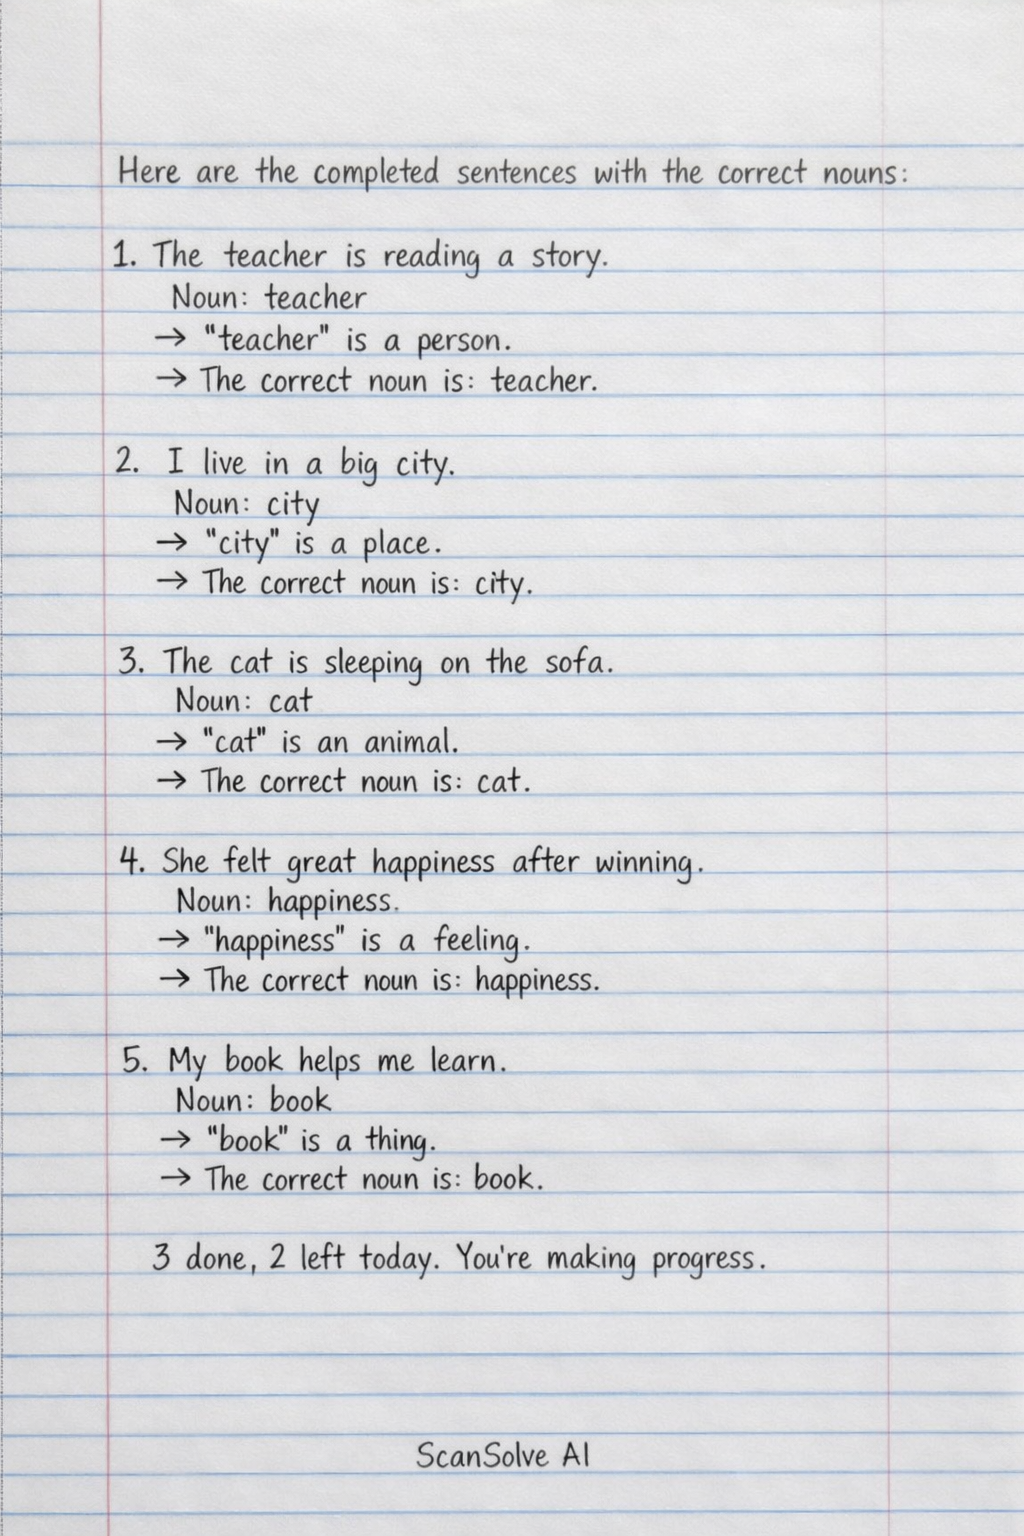 Here are the completed sentences with the correct nouns:
1. The teacher is reading a story.
Noun: teacher
→ "teacher" is a person.
→ The correct noun is: teacher.
2. I live in a big city.
Noun: city
→ "city" is a place.
→ The correct noun is: city.
3. The cat is sleeping on the sofa.
Noun: cat
→ "cat" is an animal.
→ The correct noun is: cat.
4. She felt great happiness after winning.
Noun: happiness.
→ "happiness" is a feeling.
→ The correct noun is: happiness.
5. My book helps me learn.
Noun: book
→ "book" is a thing.
→ The correct noun is: book.
3 done, 2 left today. You're making progress.
ScanSolve AI